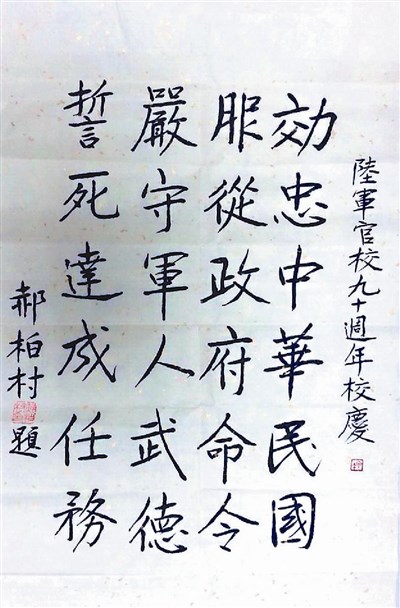 陸軍官校九十週年校慶
効忠中華民國
服從政府命令
嚴守軍人武德
誓死達成任務
郝柏村題